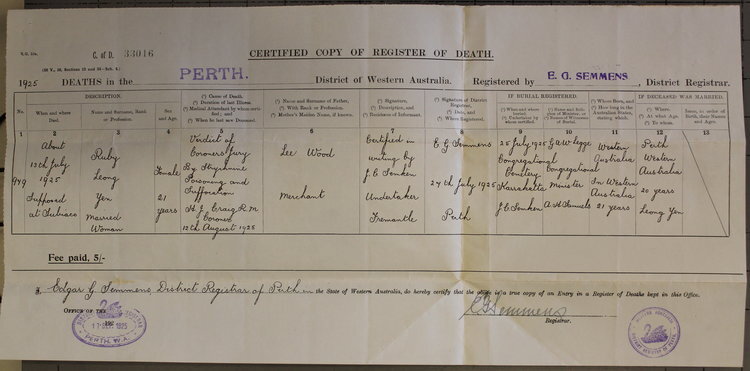 C. of D. 33016
CERTIFIED COPY OF REGISTER OF DEATH.
1925 DEATHS in the PERTH. District of Western Australia. Registered by E. G. SEMMENS , District Registrar.
DESCRIPTION.
IF BURIAL REGISTERED.
IF DECEASED WAS MARRIED.
No.
When and where Died.
Name and Surname, Rank or Profession.
Sex and Age.
(1) Cause of Death.
(2) Duration of last Illness.
(3) Medical Attendant by whom certified; and
(4) When he last saw Deceased.
(1) Name and Surname of Father,
(2) With Rank or Profession.
(3) Mother's Maiden Name, if known.
(1) Signature,
(2) Description, and
(3) Residence of Informant.
(1) Signature of District Registrar,
(2) Date, and
(3) Where Registered.
(1) When and where Buried
(2) Undertaker by whom certified.
Where Born, and How long in the Australian States, stating which.
(1) Where.
(2) At what Age.
(3) To whom.
Issue, in order of Birth, their Names and Ages.
1 2 3 4 5 6 7 8 9 10 11 12 13
949
About
12th July
1925
Supposed
at Subiaco
Ruby
Leong
Yen
Married
Woman
Female
21
years
Verdict of
Coroners Jury
By Strychnine
Poisoning and
Suffocation
H. J. Craig R.M
Coroner
12th August 1925
Lee Wood
Merchant
Certified in
writing by
J. E. Tonkin
Undertaker
Fremantle
E G Semmens
27th July 1925
Perth
25 July 1925
Congregational
Cemetery
Karrakatta
J E Tonkin
G A W Legge
Congregational
Minister
A H Samuels
Western
Australia
In Western
Australia
21 years
Perth
Western
Australia
20 years
Leong Yen
Fee paid, 5/-
I, Edgar G Semmens District Registrar of Perth in the State of Western Australia, do hereby certify that the above is a true copy of an Entry in a Register of Deaths kept in this Office.
E G Semmens
Registrar.
OFFICE OF THE
1925
PERTH, W.A.